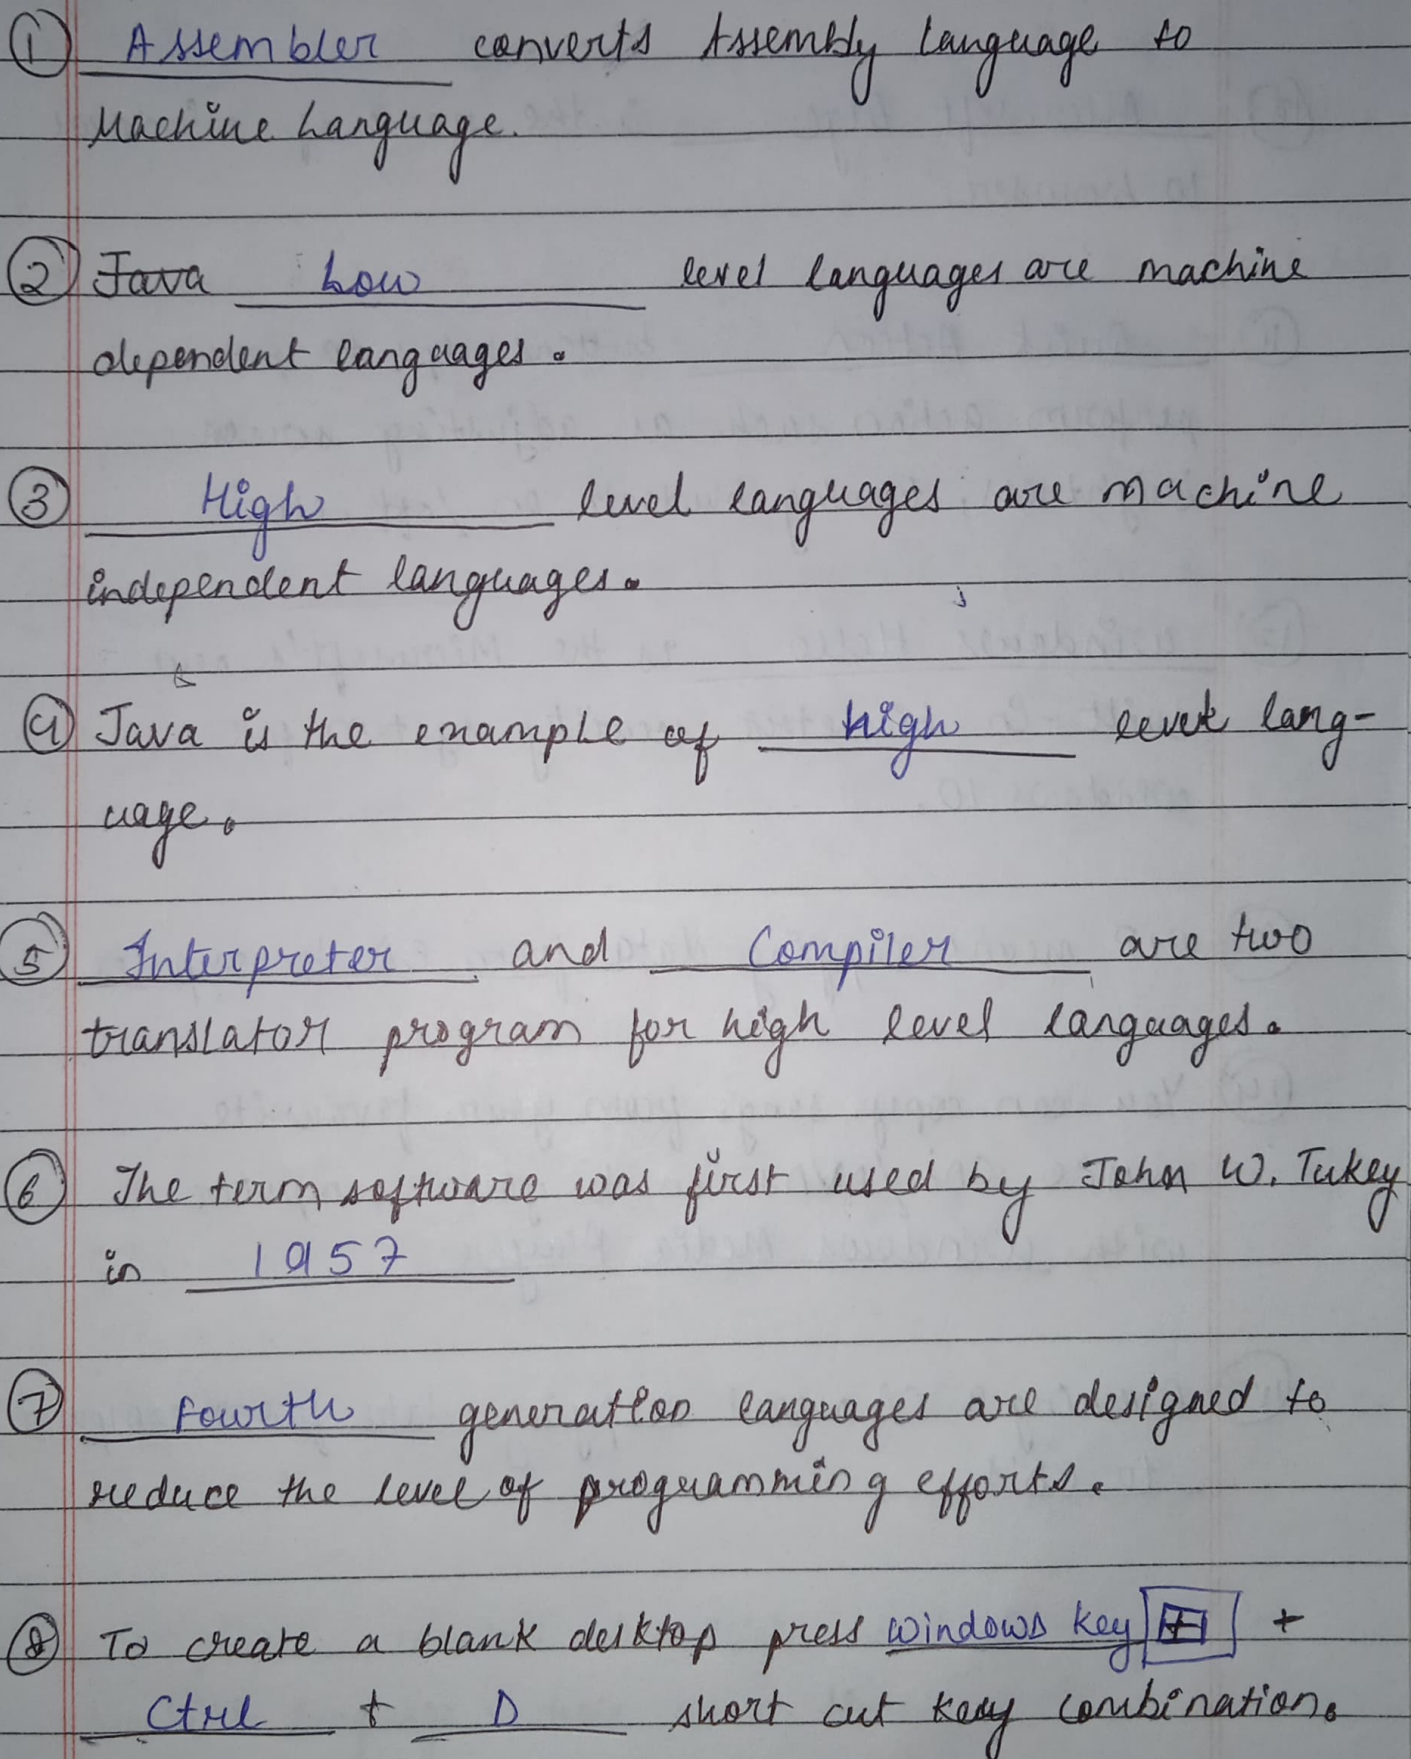 ① Assembler converts Assembly language to
Machine Language.
② Java Low level languages are machine
dependent languages.
③ High level languages are machine
independent languages.
④ Java is the example of high level lang-
uage.
⑤ Interpreter and Compiler are two
translator program for high level languages.
⑥ The term software was first used by John W. Tukey
in 1957
⑦ Fourth generation languages are designed to
reduce the level of programming efforts.
⑧ To create a blank desktop press windows key +
Ctrl + D short cut key combination.